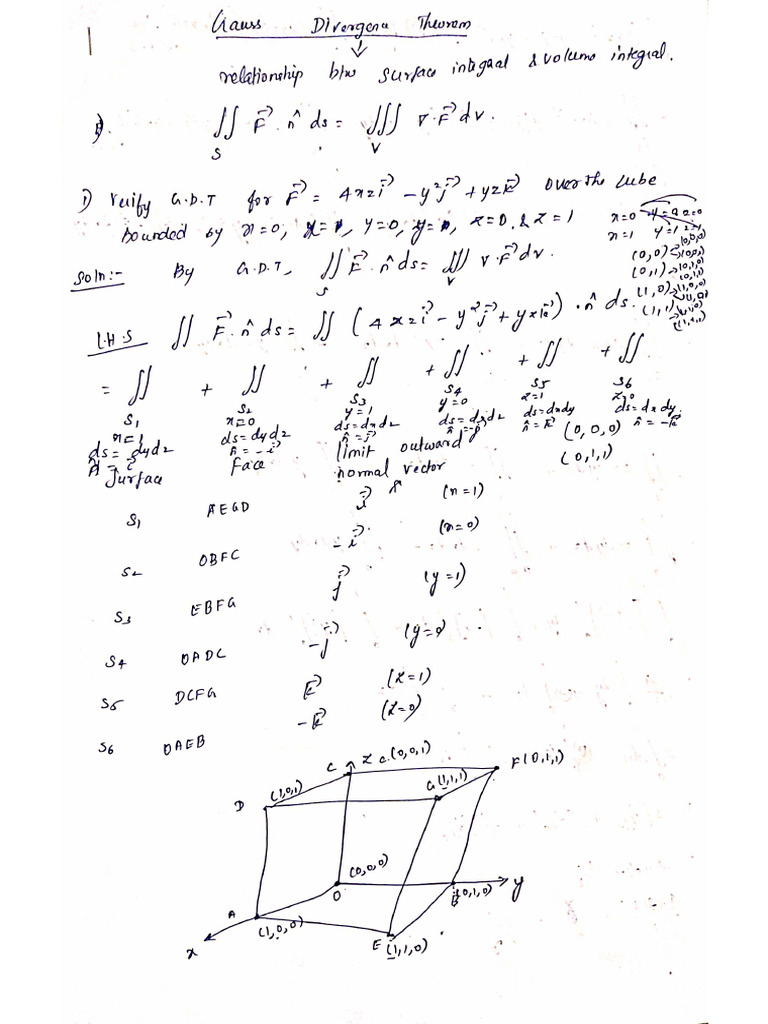 Gauss Divergence Theorem
relationship b/w surface integral & volume integral.
∬ F⃗ · n̂ ds = ∭ ∇·F⃗ dv.
S V
1) Verify G.D.T for F⃗ = 4xzi⃗ - y²j⃗ + yzk⃗ over the cube
bounded by x=0, x=1, y=0, y=1, z=0, & z=1
x=0 y=0 z=0
x=1 y=1 z=1
(0,0) (0,0,0)
(0,0,1)
(0,1) (0,1,0)
(0,1,1)
(1,0) (1,0,0)
(1,1)
(1,1,1)
Soln:- By G.D.T, ∬ F⃗ · n̂ ds = ∭ ∇·F⃗ dv.
S V
L.H.S ∬ F⃗ · n̂ ds = ∬ (4xzi⃗ - y²j⃗ + yzk⃗) · n̂ ds.
= ∬ + ∬ + ∬ + ∬ + ∬ + ∬
S1 S2 S3 S4 S5 S6
x=1 x=0 y=1 y=0 z=1 z=0
ds=dydz ds=dydz ds=dxdz ds=dxdz ds=dxdy ds=dxdy
n̂=i⃗ n̂=-i⃗ n̂=j⃗ n̂=-j⃗ n̂=k⃗ n̂=-k⃗
(0,0,0)
(0,1,1)
Surface Face limit outward
normal vector
S1 AEGD i⃗ (x=1)
S2 OBFC -i⃗ (x=0)
S3 EBFG j⃗ (y=1)
S4 OADC -j⃗ (y=0)
S5 DCFG k⃗ (z=1)
S6 OAEB -k⃗ (z=0)
C z C.(0,0,1)
F(0,1,1)
D (1,0,1)
G(1,1,1)
(0,0,0)
O
B(0,1,0)
y
A (1,0,0)
x
E (1,1,0)